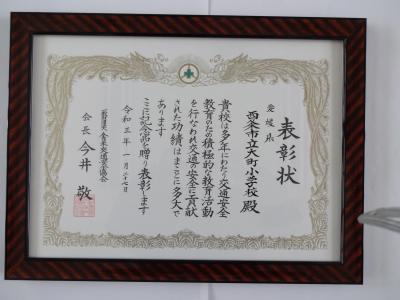 表彰状
愛媛県
西条市立大町小学校 殿
貴校は多年にわたり交通安全
教育のため積極的な教育活動
を行なわれ交通の安全に貢献
された功績はまことに多大で
あります
ここに記念品を贈り表彰します
令和三年一月二十七日
会長 今井 敬